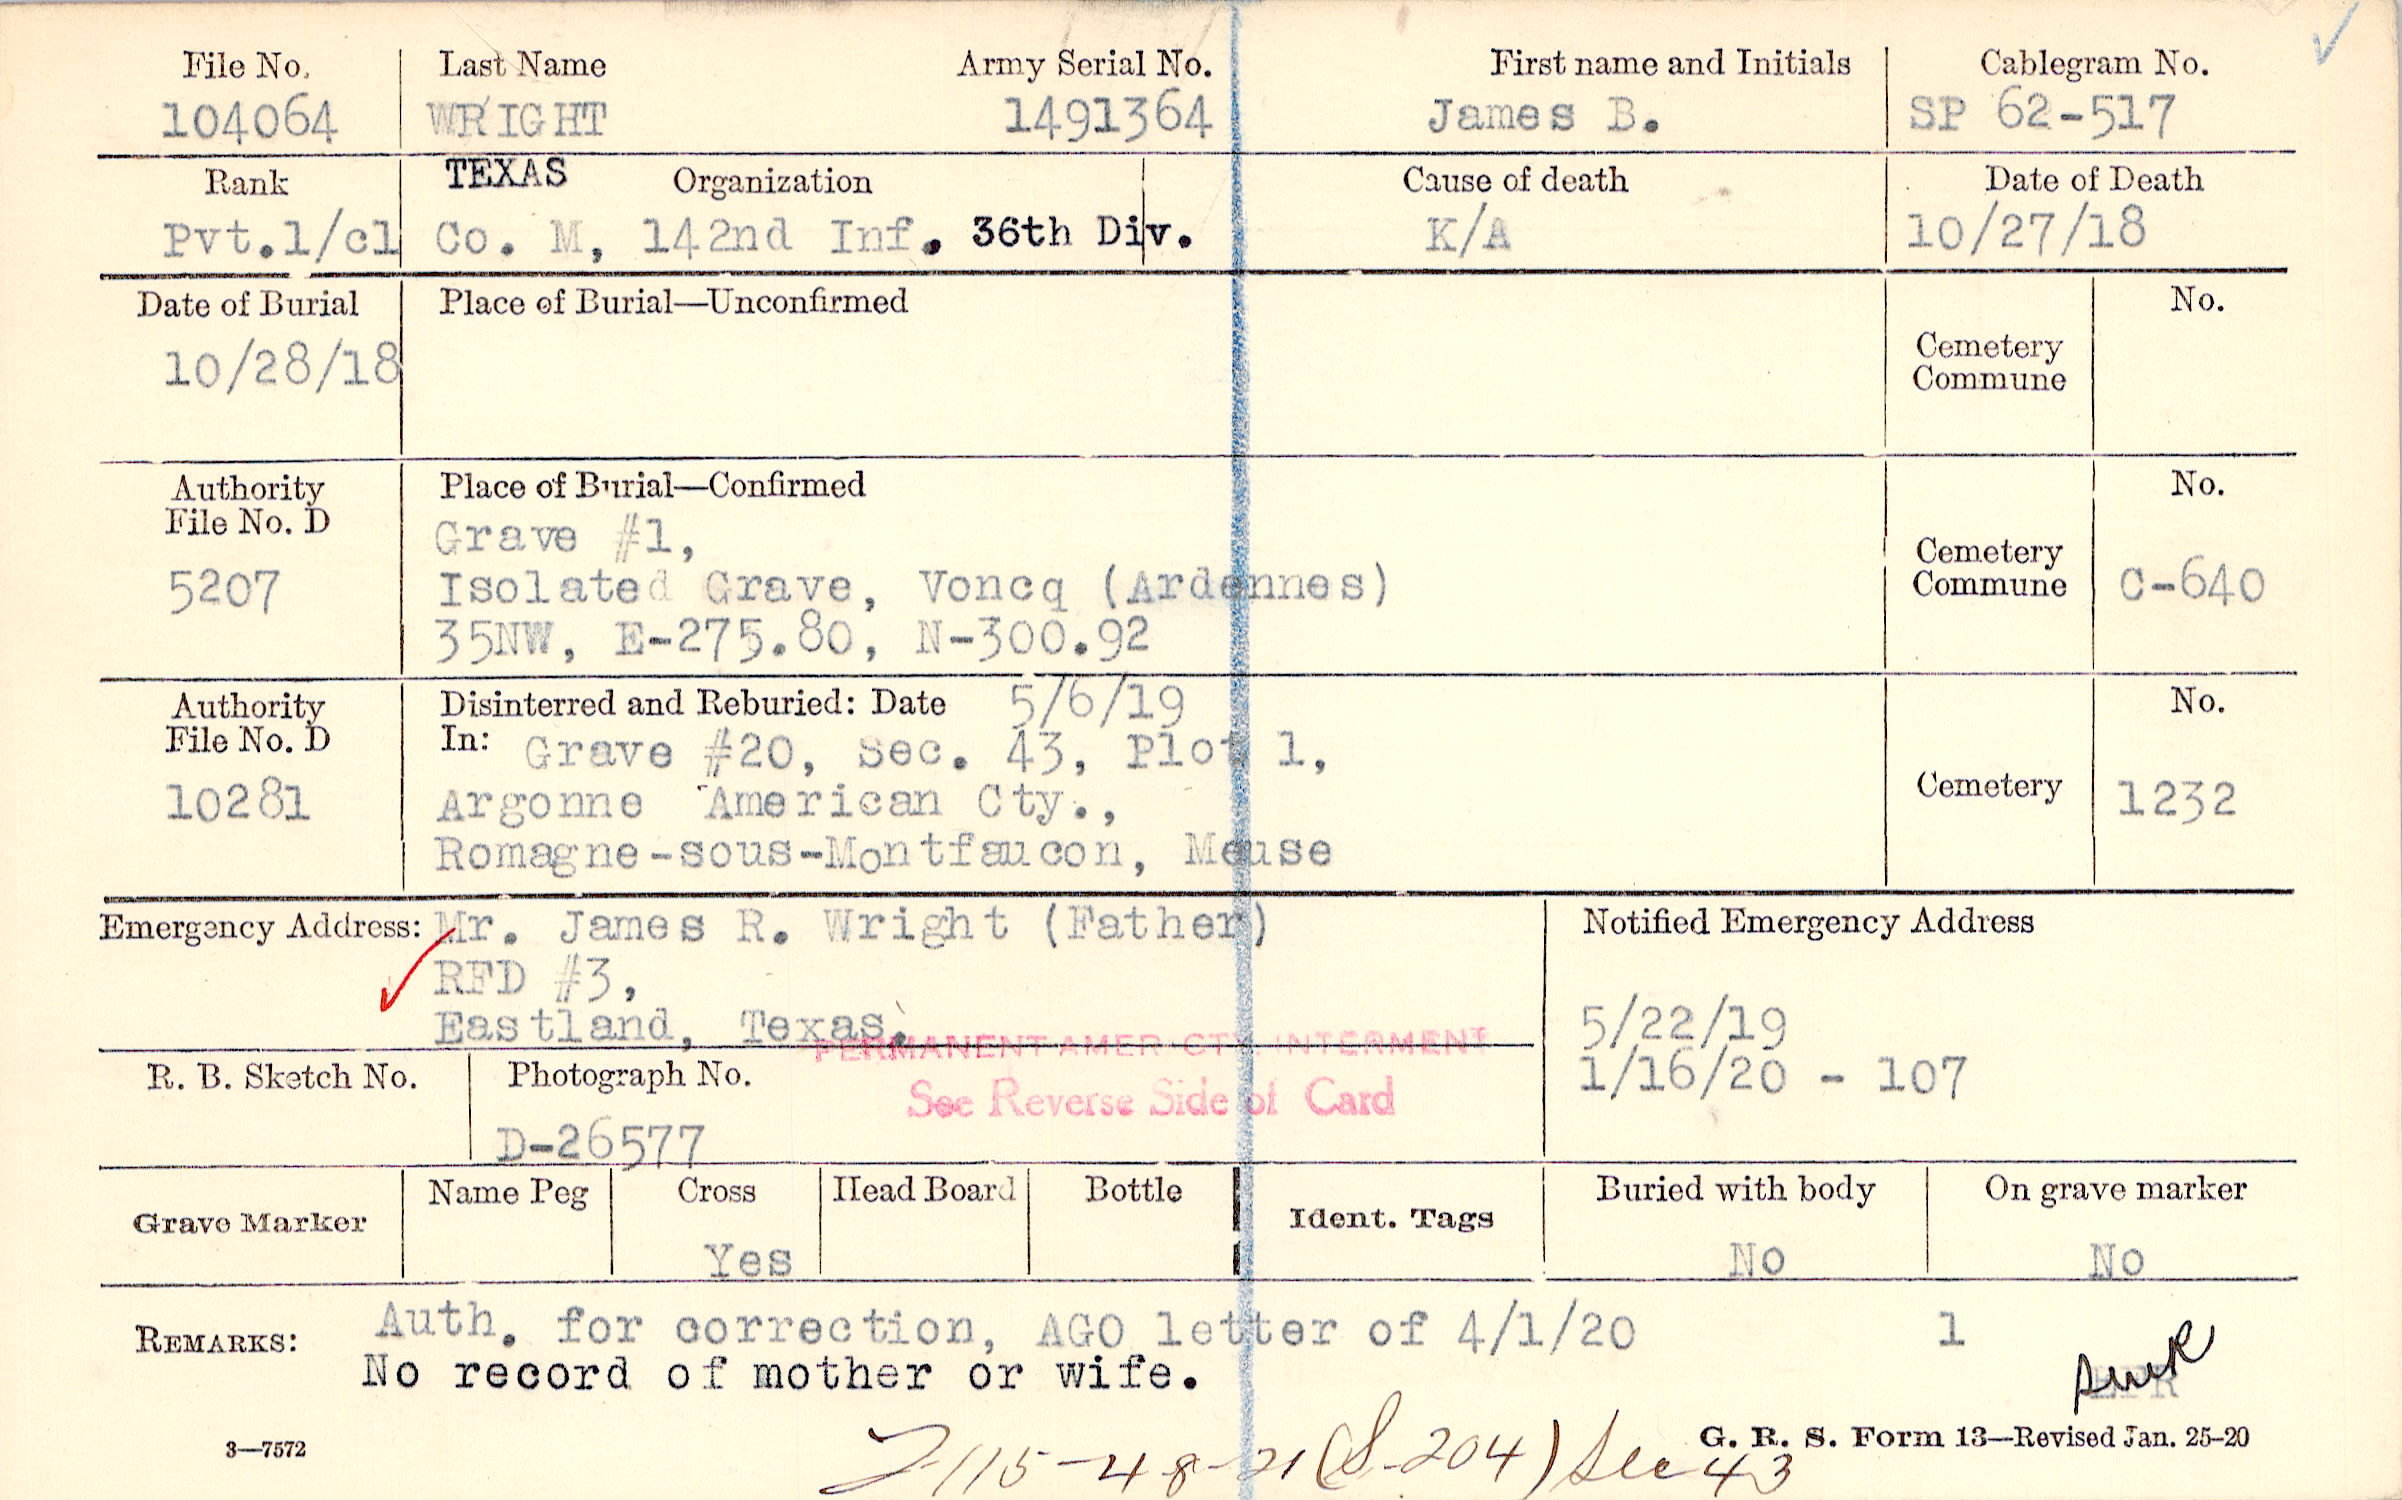 File No. Last Name Army Serial No. First name and Initials Cablegram No.
104064 WRIGHT 1491364 James B. SP 62-517
Rank TEXAS Organization Cause of death Date of Death
Pvt.1/cl Co. M, 142nd Inf. 36th Div. K/A 10/27/18
Date of Burial Place of Burial—Unconfirmed No.
10/28/18 Cemetery
Commune
Authority Place of Burial—Confirmed No.
File No. D Grave #1,
5207 Isolated Grave, Voncq (Ardennes) Cemetery
Commune C-640
35NW, E-275.80, N-300.92
Authority Disinterred and Reburied: Date 5/6/19 No.
File No. D In: Grave #20, Sec. 43, Plot 1,
10281 Argonne American Cty., Cemetery 1232
Romagne-sous-Montfaucon, Meuse
Emergency Address: Mr. James R. Wright (Father) Notified Emergency Address
RFD #3,
Eastland, Texas. 5/22/19
PERMANENT AMER CTY. INTERMENT
R. B. Sketch No. Photograph No. See Reverse Side of Card 1/16/20 - 107
D-26577
Grave Marker Name Peg Cross Head Board Bottle Ident. Tags Buried with body On grave marker
Yes No No
REMARKS: Auth. for correction, AGO letter of 4/1/20 1
No record of mother or wife.
3—7572 G. R. S. Form 13—Revised Jan. 25-20
115-48-21 (S-204) Sec 43